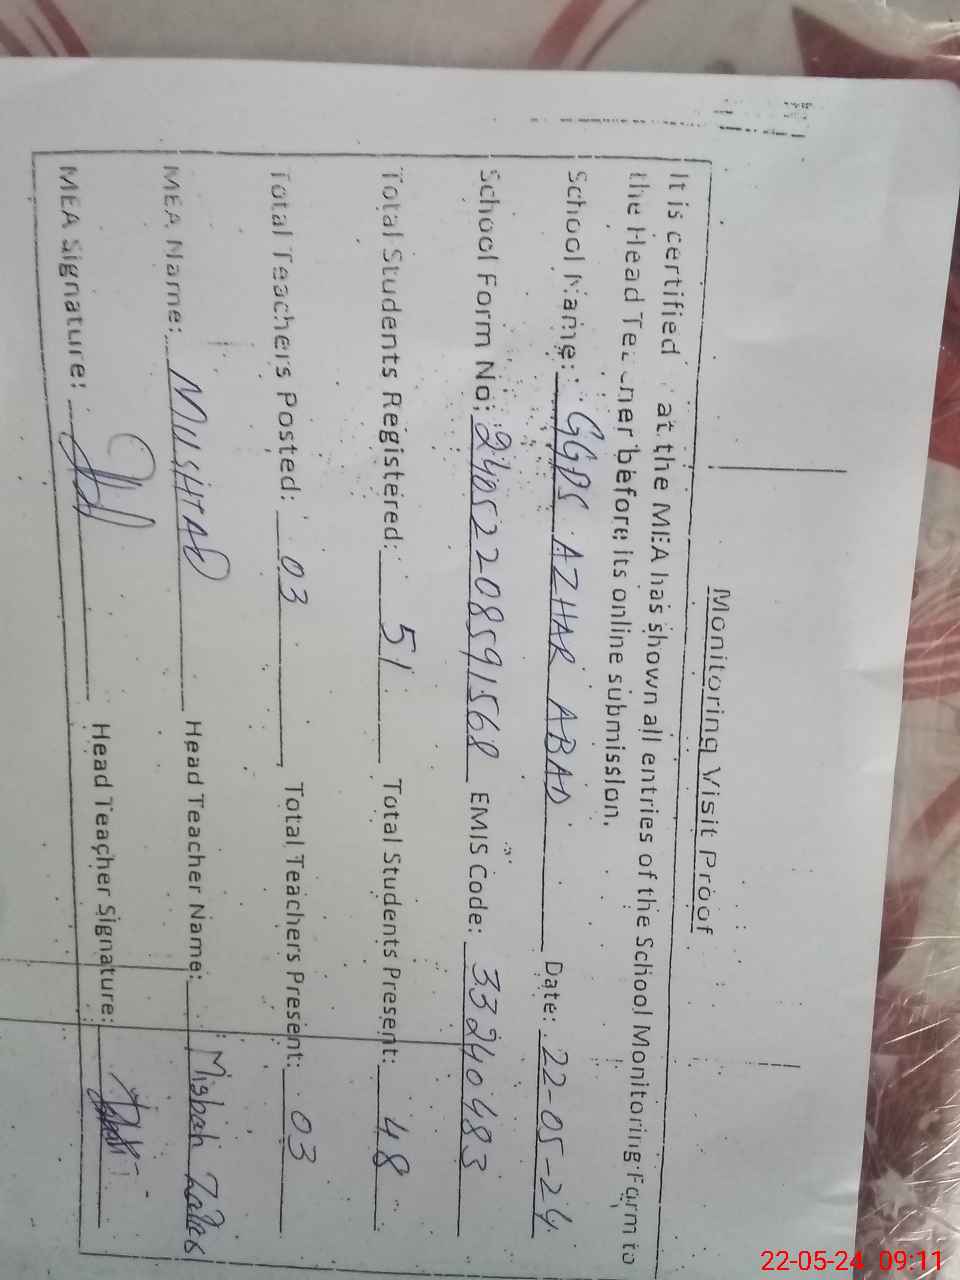 Monitoring Visit Proof
It is certified at the MEA has shown all entries of the School Monitoring Form to
the Head Teacher before its online submission.
School Name: GGPS AZHAR ABAD Date: 22-05-24
School Form No: 24052208591568 EMIS Code: 33240483
Total Students Registered: 51 Total Students Present: 48
Total Teachers Posted: 03 Total Teachers Present: 03
MEA Name: MUSHTAQ Head Teacher Name: Misbah
MEA Signature: Head Teacher Signature:
22-05-24 09:11